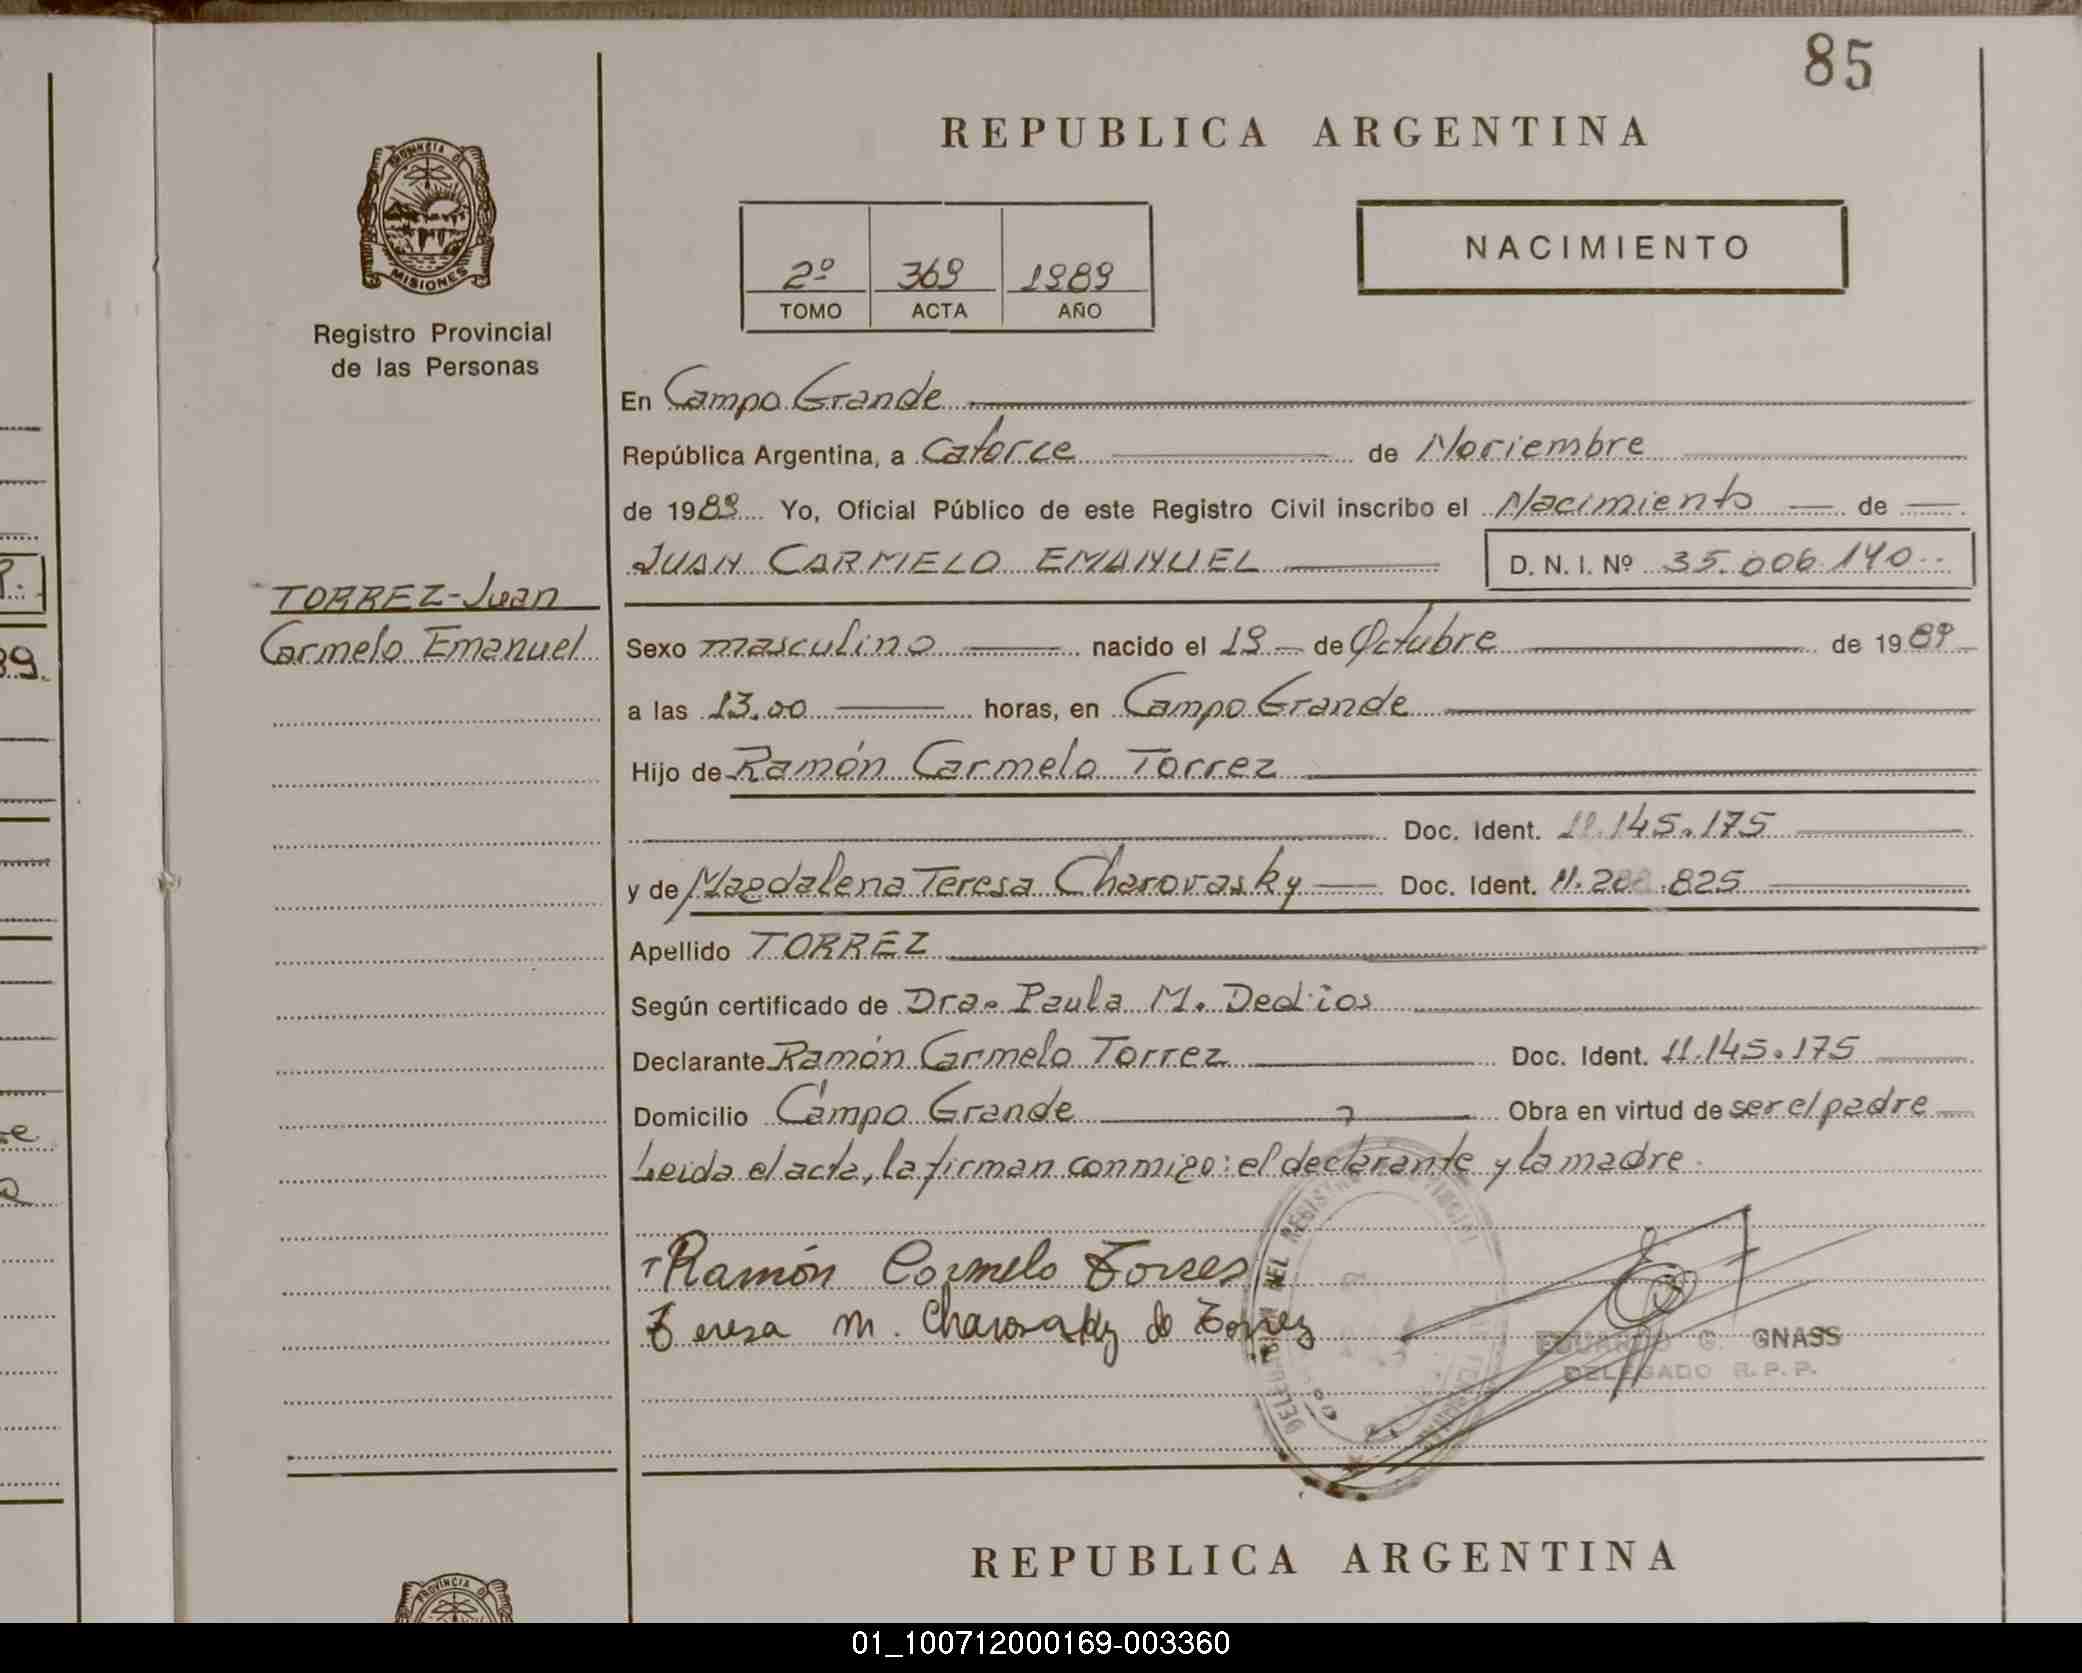 85
REPUBLICA ARGENTINA
PROVINCIA DE
MISIONES
Registro Provincial
de las Personas
2º 369 1989
TOMO ACTA AÑO
NACIMIENTO
En Campo Grande
República Argentina, a catorce de Noviembre
de 1989 Yo, Oficial Público de este Registro Civil inscribo el Nacimiento de
JUAN CARMELO EMANUEL D. N. I. Nº 35.006.140
TORREZ-Juan
Carmelo Emanuel
Sexo masculino nacido el 19 de Octubre de 1989
a las 13.00 horas, en Campo Grande
Hijo de Ramón Carmelo Torrez
Doc. Ident. 11.145.175
y de Magdalena Teresa Charovasky Doc. Ident.
Apellido TORREZ
Según certificado de Dra. Paula M. Dedios
Declarante Ramón Carmelo Torrez Doc. Ident. 11.145.175
Domicilio Campo Grande Obra en virtud de ser el padre
Leida el acta, la firman conmigo: el declarante y la madre.
Ramón Carmelo Torres
Teresa M. Charovasky de Torrez
EDUARDO G. GNASS
DELEGADO R.P.P.
REPUBLICA ARGENTINA
PROVINCIA DE
01_100712000169-003360